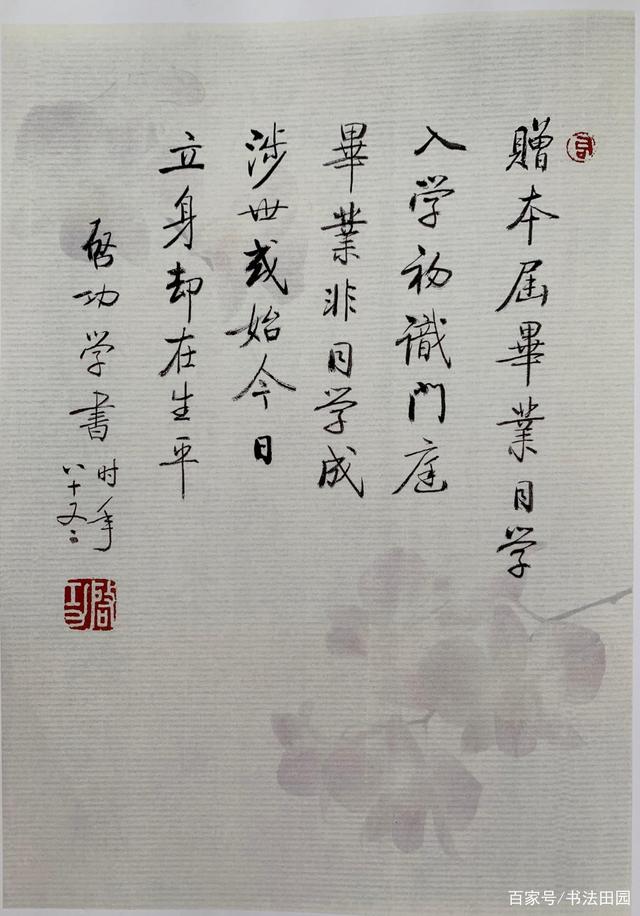 贈本屆畢業同学
入学初識門庭
畢業非同学成
涉世或始今日
立身却在生平
啓功学書
时年
八十又
啓功
百家号/书法田园